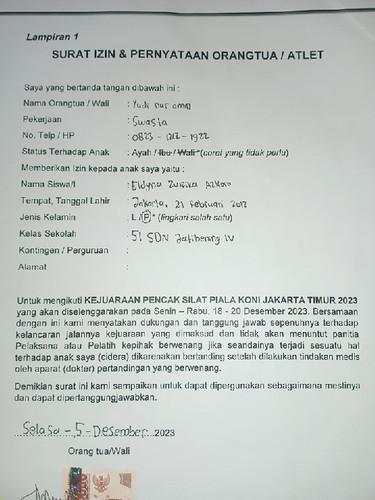 Lampiran 1
SURAT IZIN & PERNYATAAN ORANGTUA / ATLET
Saya yang bertanda tangan dibawah ini :
Nama Orangtua / Wali : Yudi nur
Pekerjaan : Swasta
No. Telp / HP : 0823 - 1212 - 1922
Status Terhadap Anak : Ayah / Ibu / Wali *(coret yang tidak perlu)
Memberikan Izin kepada anak saya yaitu :
Nama Siswa/I :
Tempat, Tanggal Lahir : Jakarta, 21 Februari 2012
Jenis Kelamin : L / P * (lingkari salah satu)
Kelas Sekolah : 5 / SDN Jatibening IV
Kontingen / Perguruan :
Alamat :
Untuk mengikuti KEJUARAAN PENCAK SILAT PIALA KONI JAKARTA TIMUR 2023
yang akan diselenggarakan pada Senin – Rabu, 18 - 20 Desember 2023. Bersamaan
dengan ini kami menyatakan dukungan dan tanggung jawab sepenuhnya terhadap
kelancaran jalannya kejuaraan yang dimaksud dan tidak akan menuntut panitia
Pelaksana atau Pelatih kepihak berwenang jika seandainya terjadi sesuatu hal
terhadap anak saya (cidera) dikarenakan bertanding setelah dilakukan tindakan medis
oleh aparat (dokter) pertandingan yang berwenang.
Demikian surat ini kami sampaikan untuk dapat dipergunakan sebagaimana mestinya
dan dapat dipertanggungjawabkan.
Selasa - 5 - Desember 2023
Orang tua/Wali